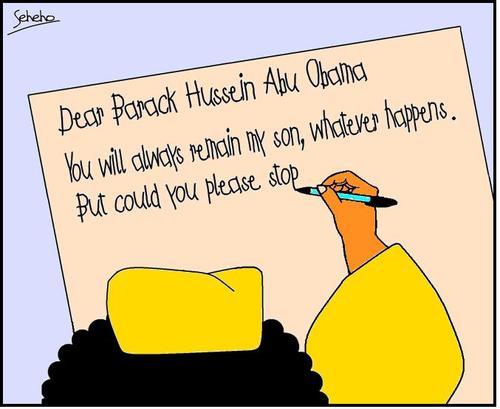 Seheho
Dear Barack Hussein Abu Obama
You will always remain my son, whatever happens.
But could you please stop